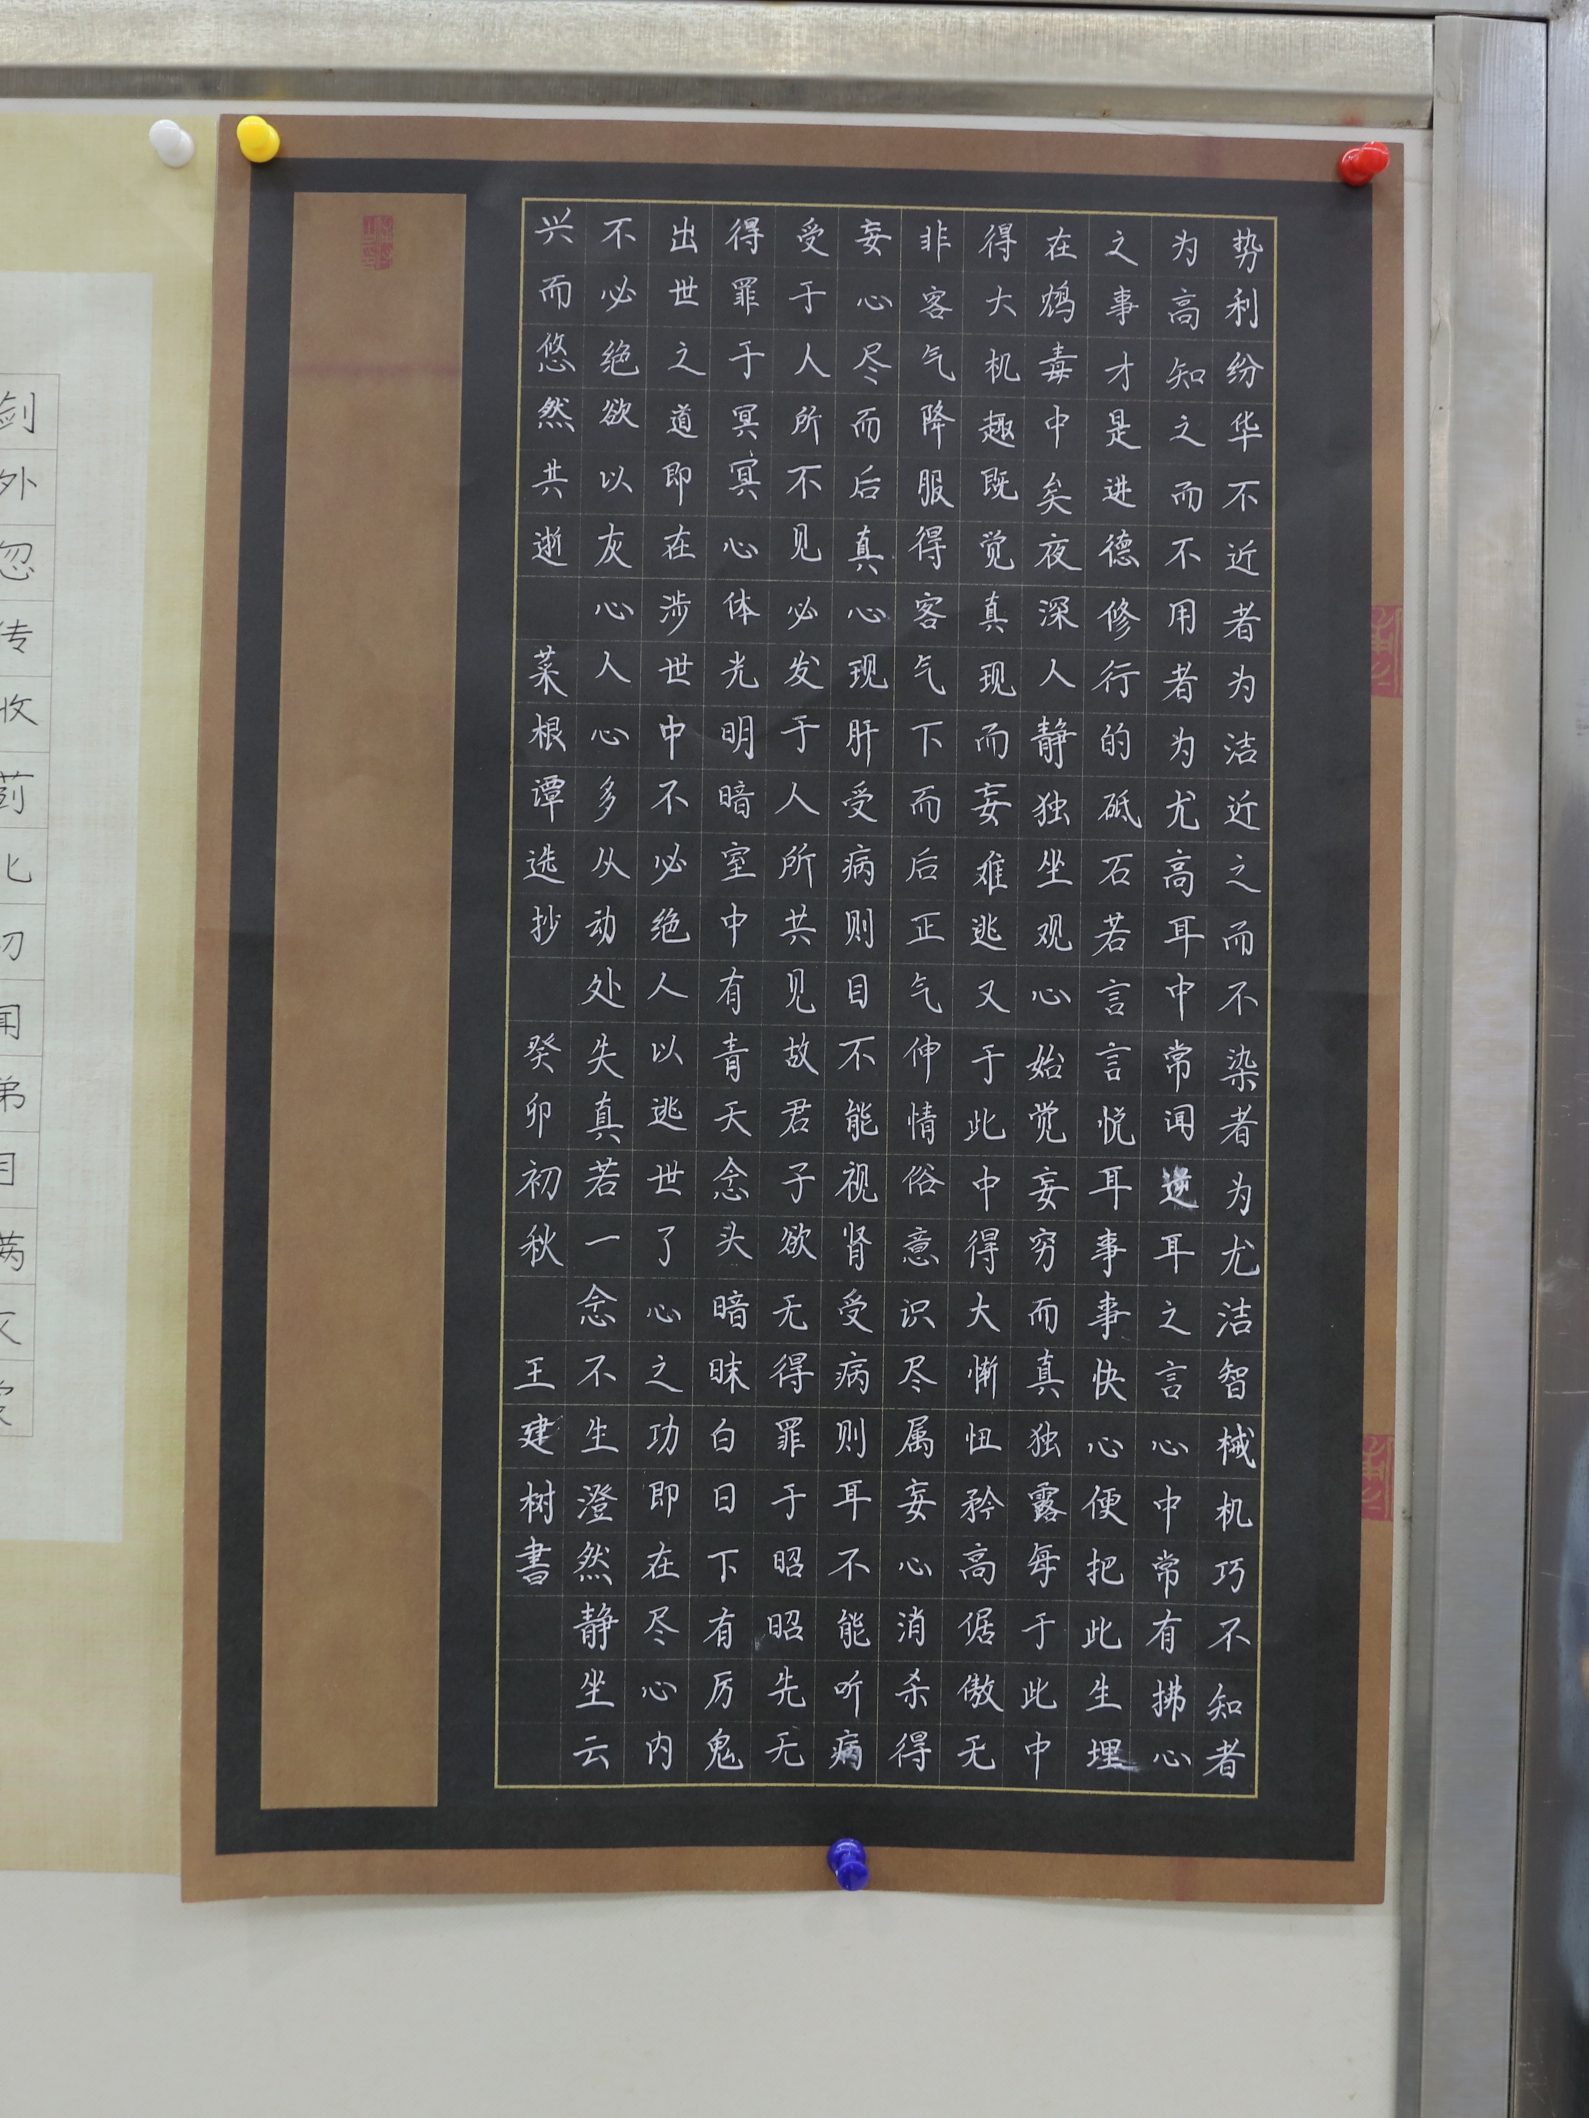 势利纷华不近者为洁近之而不染者为尤洁智械机巧不知者
为高知之而不用者为尤高耳中常闻逆耳之言心中常有拂心
之事才是进德修行的砥石若言言悦耳事事快心便把此生埋
在鸩毒中矣夜深人静独坐观心始觉妄穷而真独露每于此中
得大机趣既觉真现而妄难逃又于此中得大惭忸矜高倨傲无
非客气降服得客气下而后正气伸情俗意识尽属妄心消杀得
妄心尽而后真心现肝受病则目不能视肾受病则耳不能听病
受于人所不见必发于人所共见故君子欲无得罪于昭昭先无
得罪于冥冥心体光明暗室中有青天念头暗昧白日下有厉鬼
出世之道即在涉世中不必绝人以逃世了心之功即在尽心内
不必绝欲以灰心人心多从动处失真若一念不生澄然静坐云
兴而悠然共逝 菜根谭选抄 癸卯初秋 王建树書
剑外忽传收蓟北初闻涕